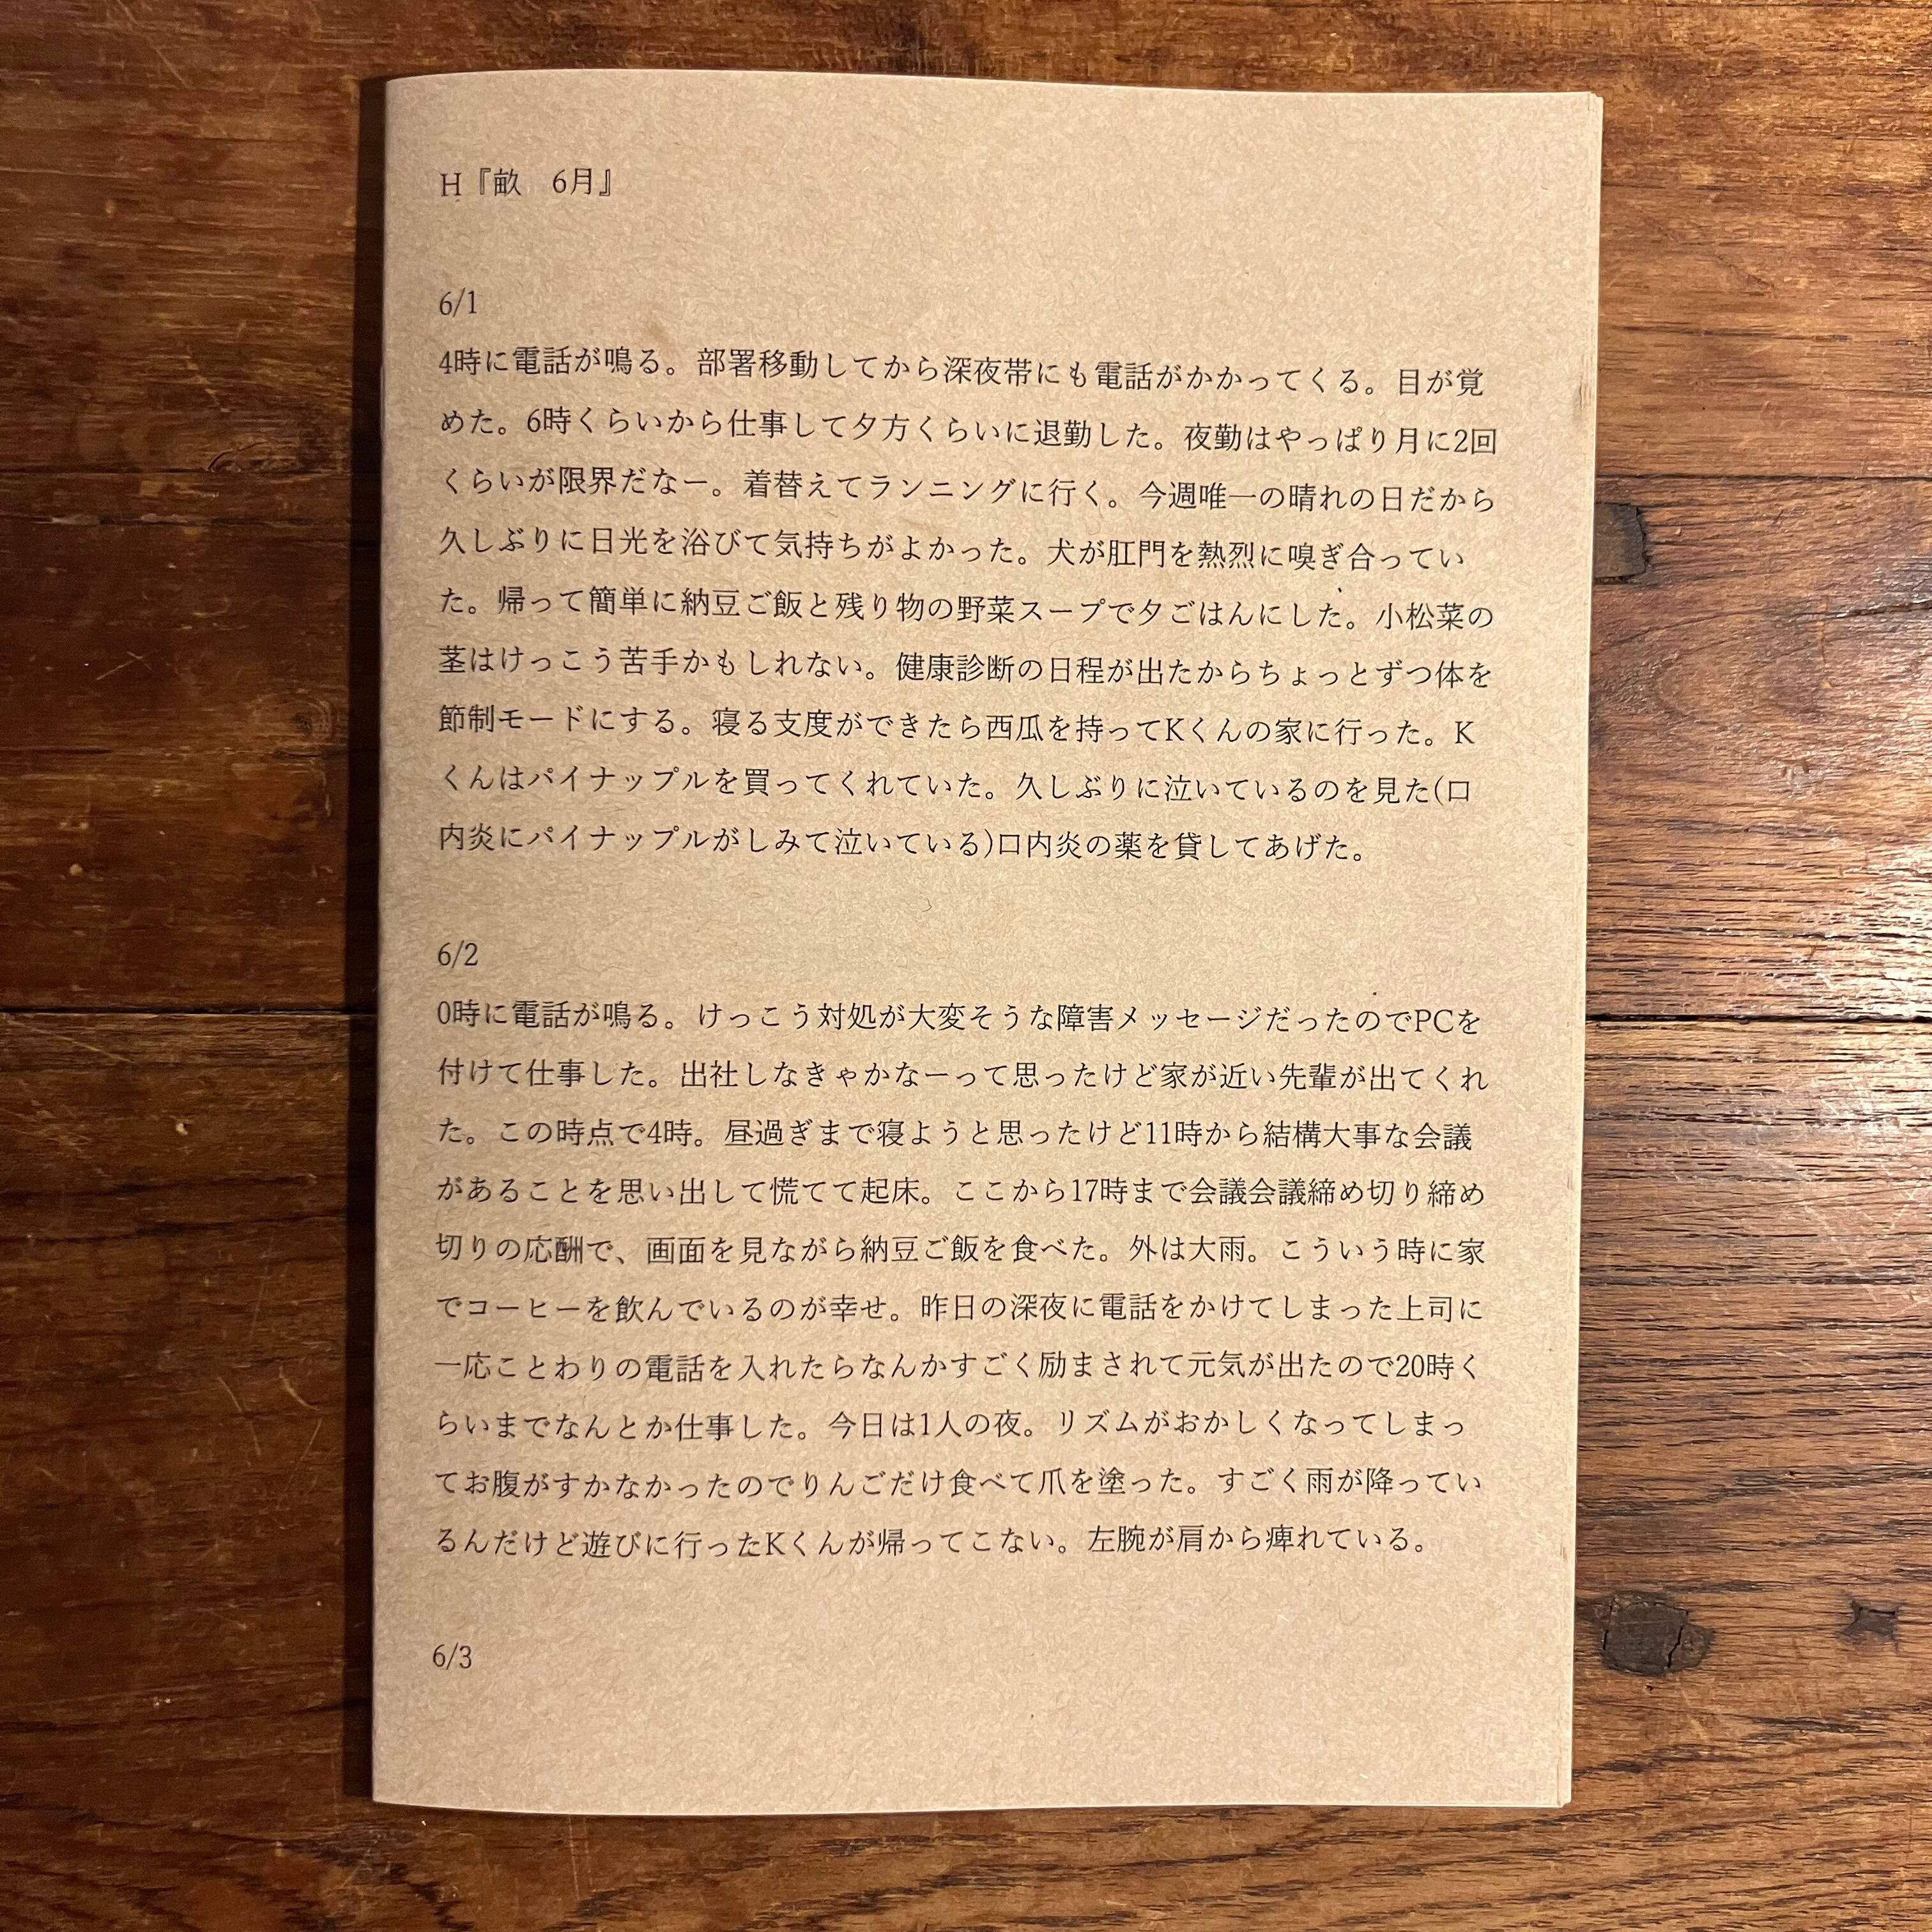 H『畝　6月』
6/1
4時に電話が鳴る。部署移動してから深夜帯にも電話がかかってくる。目が覚
めた。6時くらいから仕事して夕方くらいに退勤した。夜勤はやっぱり月に2回
くらいが限界だなー。着替えてランニングに行く。今週唯一の晴れの日だから
久しぶりに日光を浴びて気持ちがよかった。犬が肛門を熱烈に嗅ぎ合ってい
た。帰って簡単に納豆ご飯と残り物の野菜スープで夕ごはんにした。小松菜の
茎はけっこう苦手かもしれない。健康診断の日程が出たからちょっとずつ体を
節制モードにする。寝る支度ができたら西瓜を持ってKくんの家に行った。K
くんはパイナップルを買ってくれていた。久しぶりに泣いているのを見た(口
内炎にパイナップルがしみて泣いている)口内炎の薬を貸してあげた。
6/2
0時に電話が鳴る。けっこう対処が大変そうな障害メッセージだったのでPCを
付けて仕事した。出社しなきゃかなーって思ったけど家が近い先輩が出てくれ
た。この時点で4時。昼過ぎまで寝ようと思ったけど11時から結構大事な会議
があることを思い出して慌てて起床。ここから17時まで会議会議締め切り締め
切りの応酬で、画面を見ながら納豆ご飯を食べた。外は大雨。こういう時に家
でコーヒーを飲んでいるのが幸せ。昨日の深夜に電話をかけてしまった上司に
一応ことわりの電話を入れたらなんかすごく励まされて元気が出たので20時く
らいまでなんとか仕事した。今日は1人の夜。リズムがおかしくなってしまっ
てお腹がすかなかったのでりんごだけ食べて爪を塗った。すごく雨が降ってい
るんだけど遊びに行ったKくんが帰ってこない。左腕が肩から痺れている。
6/3